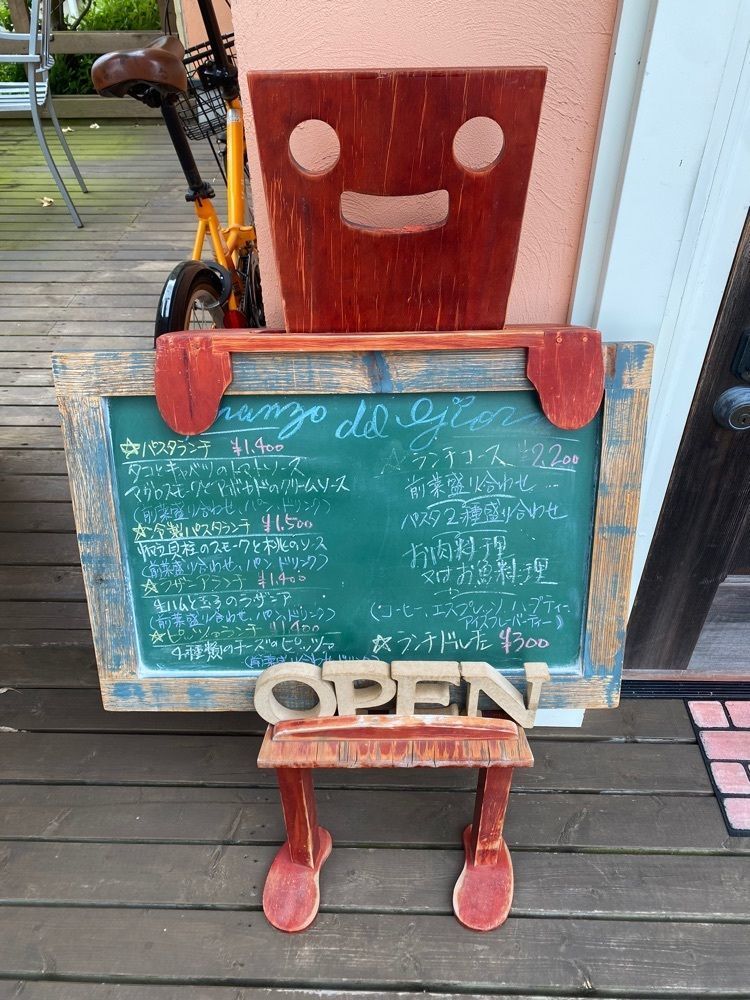 del Gior
☆パスタランチ ¥1.400
タコとキャベツのトマトソース
マグロスモークとアボカドのクリームソース
(前菜盛り合わせ、パン、ドリンク)
☆冷製パスタランチ ¥1.500
帆立貝柱のスモークと桃のソース
(前菜盛り合わせ、パン、ドリンク)
☆ラザーニアランチ ¥1.400
生ハムと のラザーニア
(前菜盛り合わせ、パン、ドリンク)
☆ピッツァランチ ¥1.400
4種類のチーズのピッツァ
(前菜盛り合わせ、ドリンク)
☆ランチコース ¥2.200
前菜盛り合わせ
パスタ2種盛り合わせ
お肉料理
又はお魚料理
(コーヒー、エスプレッソ、ハーブティー、
アイスフレーバーティー)
☆ランチドルチェ ¥300
OPEN